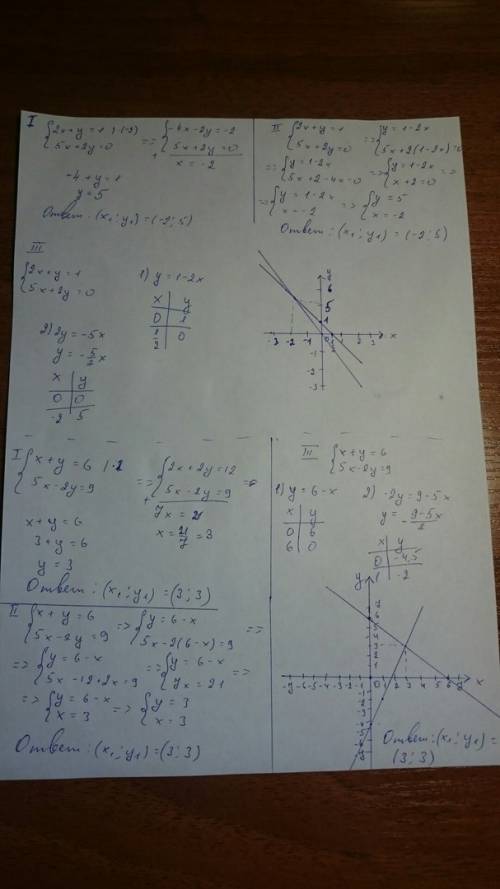 I
{2x+y=1 |·(-2)
{5x+2y=0
=> {-4x-2y=-2
+ {5x+2y=0
x=-2
-4+y=1
y=5
Ответ: (x₁; y₁) = (-2; 5)
II
{2x+y=1
{5x+2y=0
=> {y=1-2x
{5x+2(1-2x)=0
=> {y=1-2x
{5x+2-4x=0
=> {y=1-2x
{x+2=0
=>
=> {y=1-2x
{x=-2
=> {y=5
{x=-2
Ответ: (x₁; y₁) = (-2; 5)
III
{2x+y=1
{5x+2y=0
1) y=1-2x
x y
0 1
1/2 0
2) 2y=-5x
y=-5/2x
x y
0 0
-2 5
I
{x+y=6 |·2
{5x-2y=9
=> {2x+2y=12
+ {5x-2y=9
=>
7x=21
x=21/7=3
x+y=6
3+y=6
y=3
Ответ: (x₁; y₁) = (3; 3)
II
{x+y=6
{5x-2y=9
=> {y=6-x
{5x-2(6-x)=9
=>
=> {y=6-x
{5x-12+2x=9
=> {y=6-x
{7x=21
=>
=> {y=6-x
{x=3
=> {y=3
{x=3
Ответ: (x₁; y₁) = (3; 3)
III
{x+y=6
{5x-2y=9
1) y=6-x
x y
0 6
6 0
2) -2y=9-5x
y=-9-5x/2
x y
0 -4,5
1 -2
Ответ: (x₁; y₁) =
(3; 3)